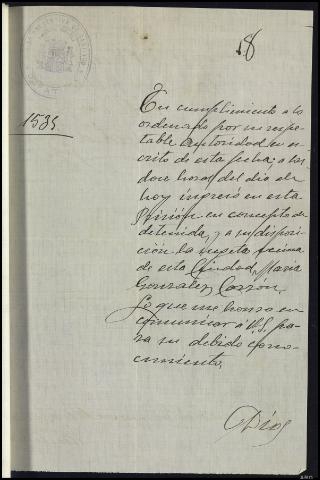 18
1535
En cumplimiento a lo
ordenado por su respe-
table autoridad en es-
crito de esta fecha; a las
doce horas del dia de
hoy ingresó en esta
Prisión en concepto de
detenida, y a su disposi-
ción la sujeta
de esta Ciudad, Maria
Gonzalez Carrón.
Lo que me honro en
comunicar á V.S. pa-
ra su debido cono-
cimiento.
Dios